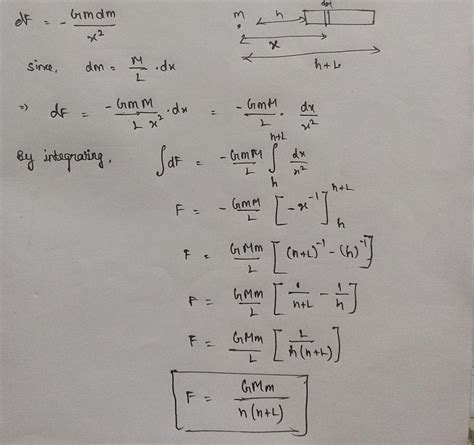 dF = - GMdm / x²
m h dM
x
h+L
since, dm = M/L · dx
⇒ dF = -GmM / L x² · dx = -GmM/L · dx/x²
By integrating, ∫dF = -GmM/L ∫ₕʰ⁺ᴸ dx/x²
F = -GMM/L [-x⁻¹]ₕʰ⁺ᴸ
F = GMm/L [(h+L)⁻¹ - (h)⁻¹]
F = GMm/L [1/h+L - 1/h]
F = GMm/L [L/h(h+L)]
F = GMm / h(h+L)